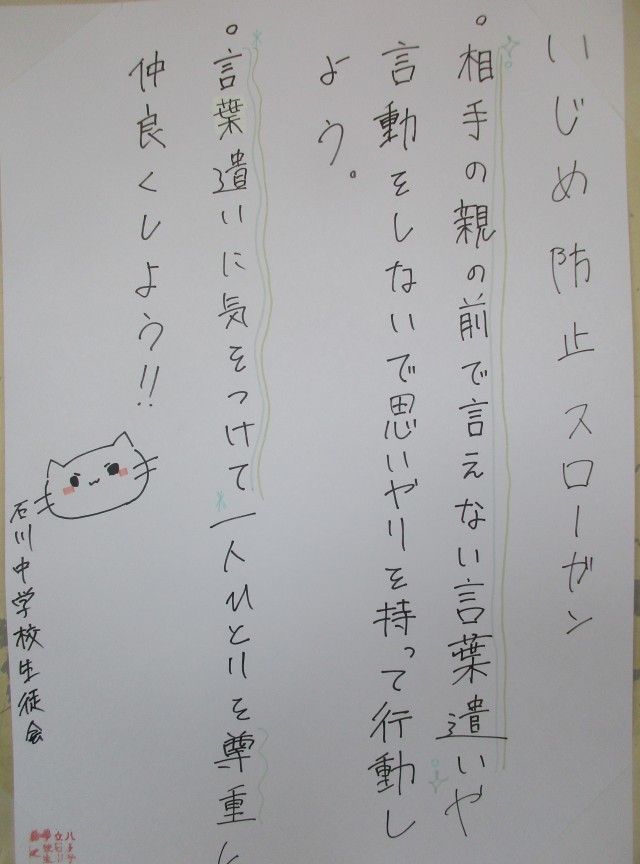 いじめ防止スローガン
。相手の親の前で言えない言葉遣いや
言動をしないで思いやりを持って行動し
よう。
。言葉遣いに気をつけて一人ひとりを尊重し
仲良くしよう!!
石川中学校生徒会